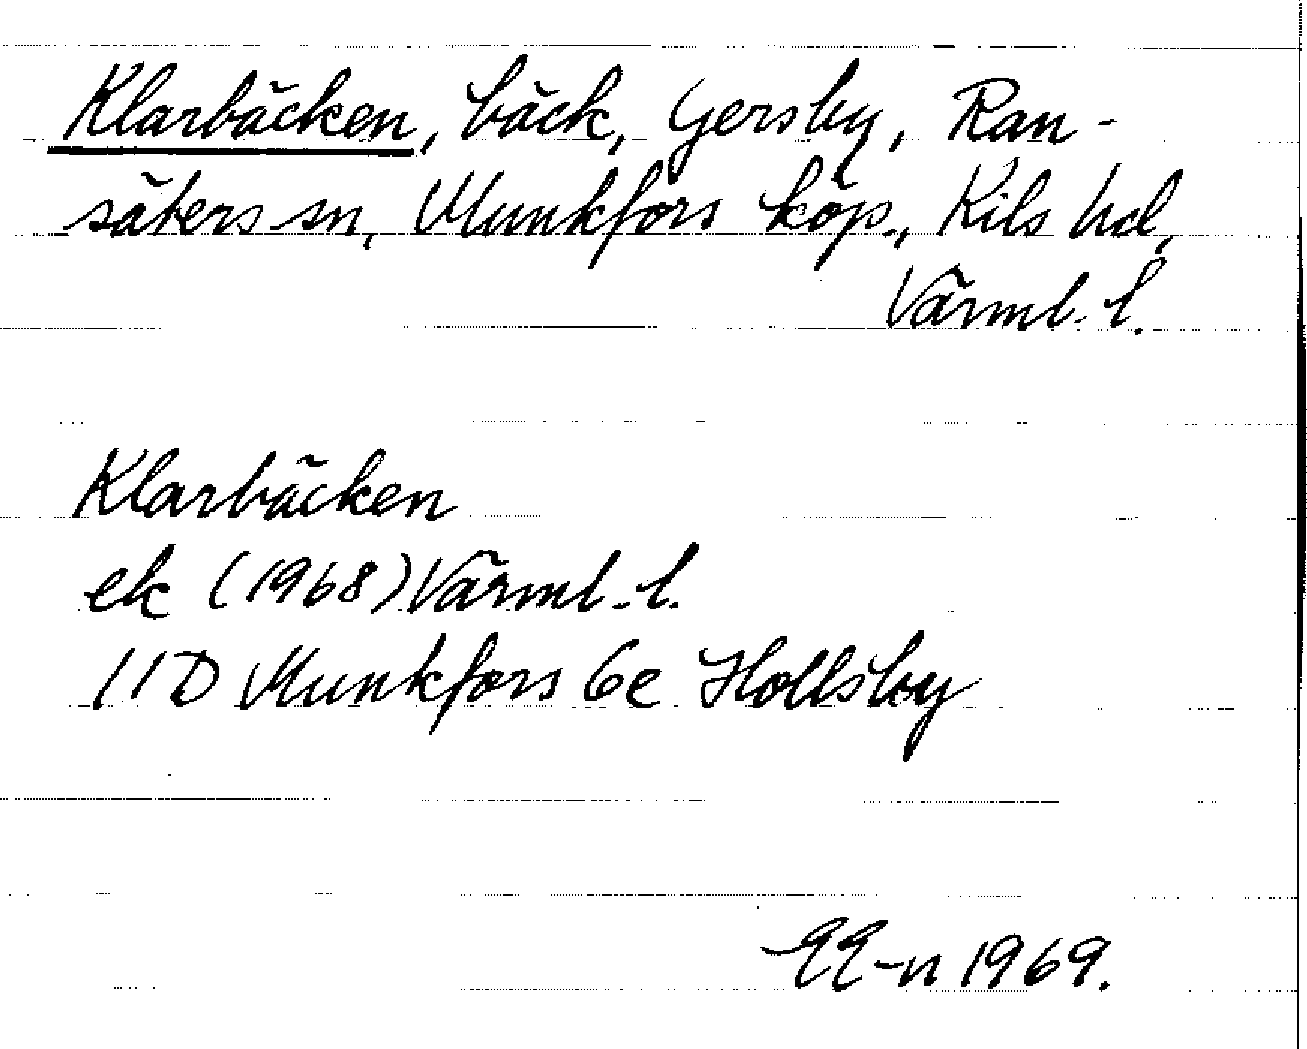 Klarbäcken, bäck, Gersby, Ran-
säters sn, Munkfors köp., Kils hd,
Värml. l.
Klarbäcken
ek (1968) Värml. l.
11D Munkfors 6e Hollsby
EE-n 1969.